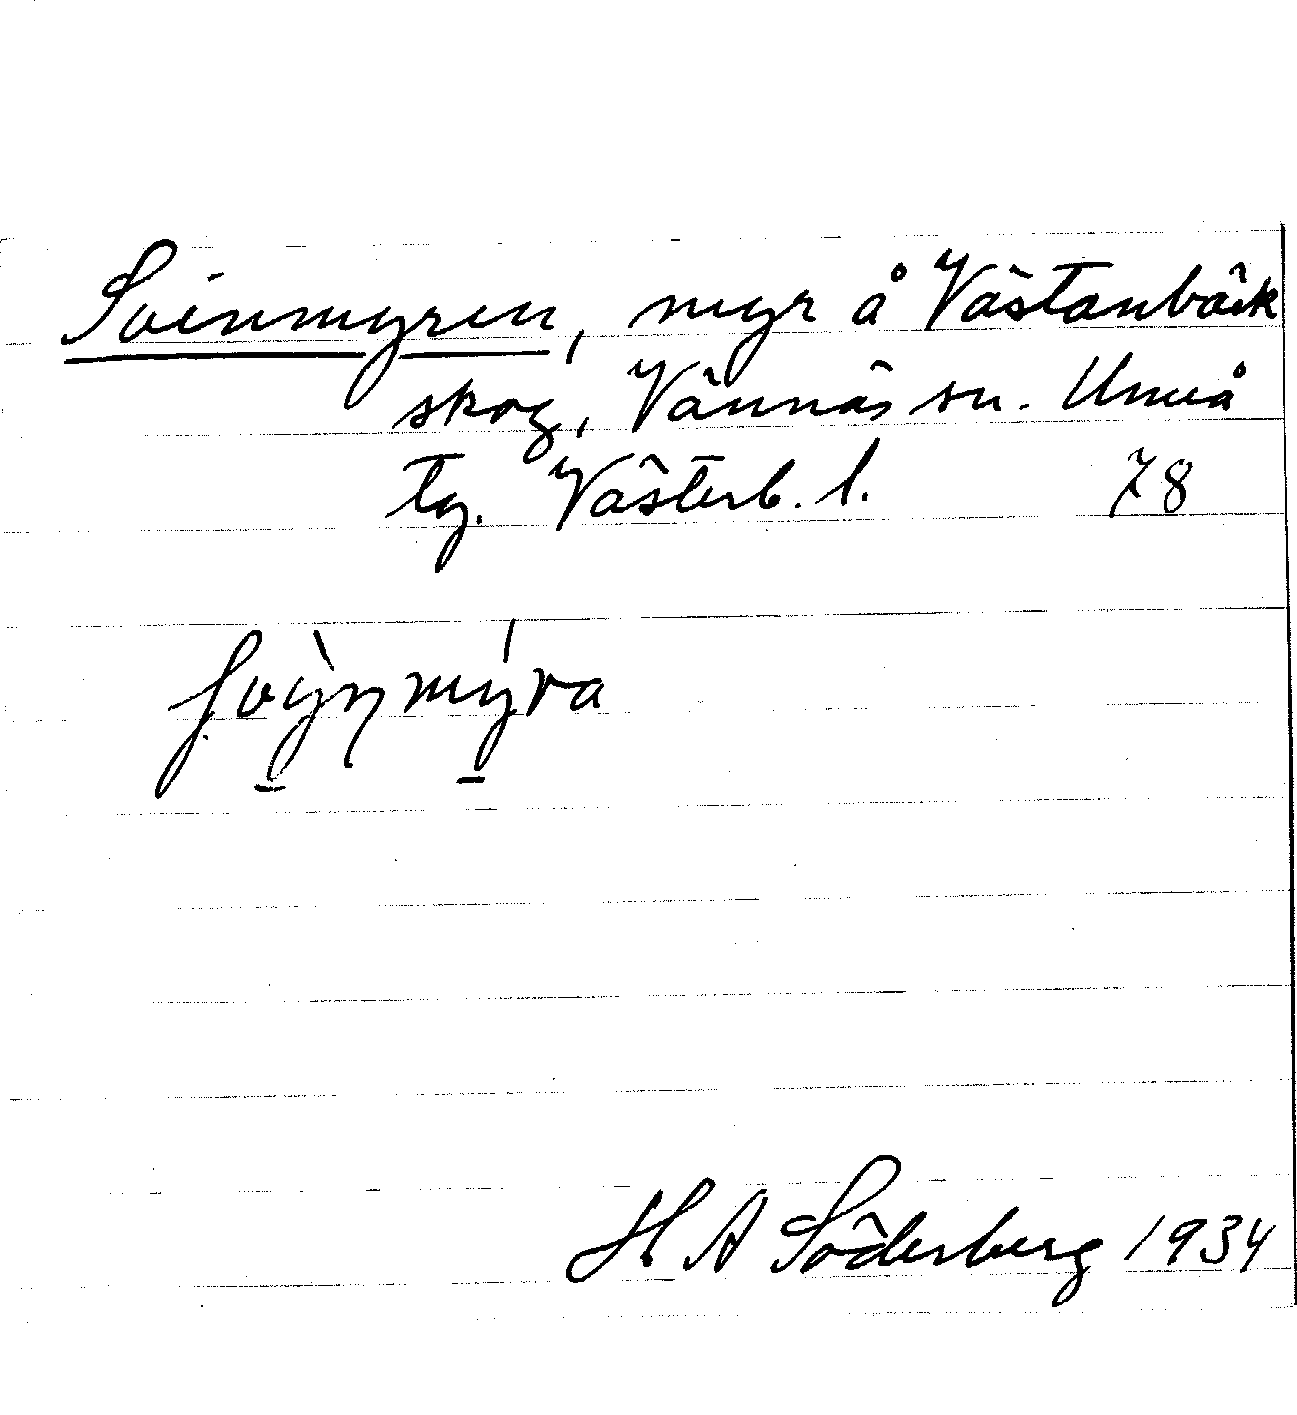 Svinmyren, myr å Västanbäck
skog, Vännäs sn. Umeå
tg. Västerb. l. 78
svỳ̠nmý̠ra
H A Söderberg 1934